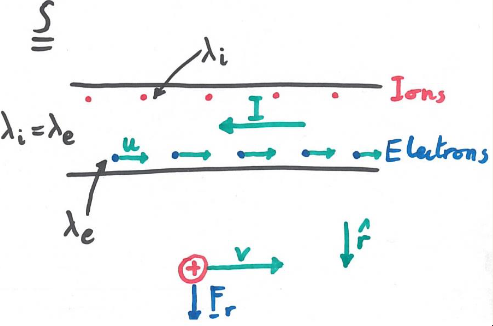 S
λi
Ions
I
λi = λe
u
Electrons
λe
r̂
v
+
Fr